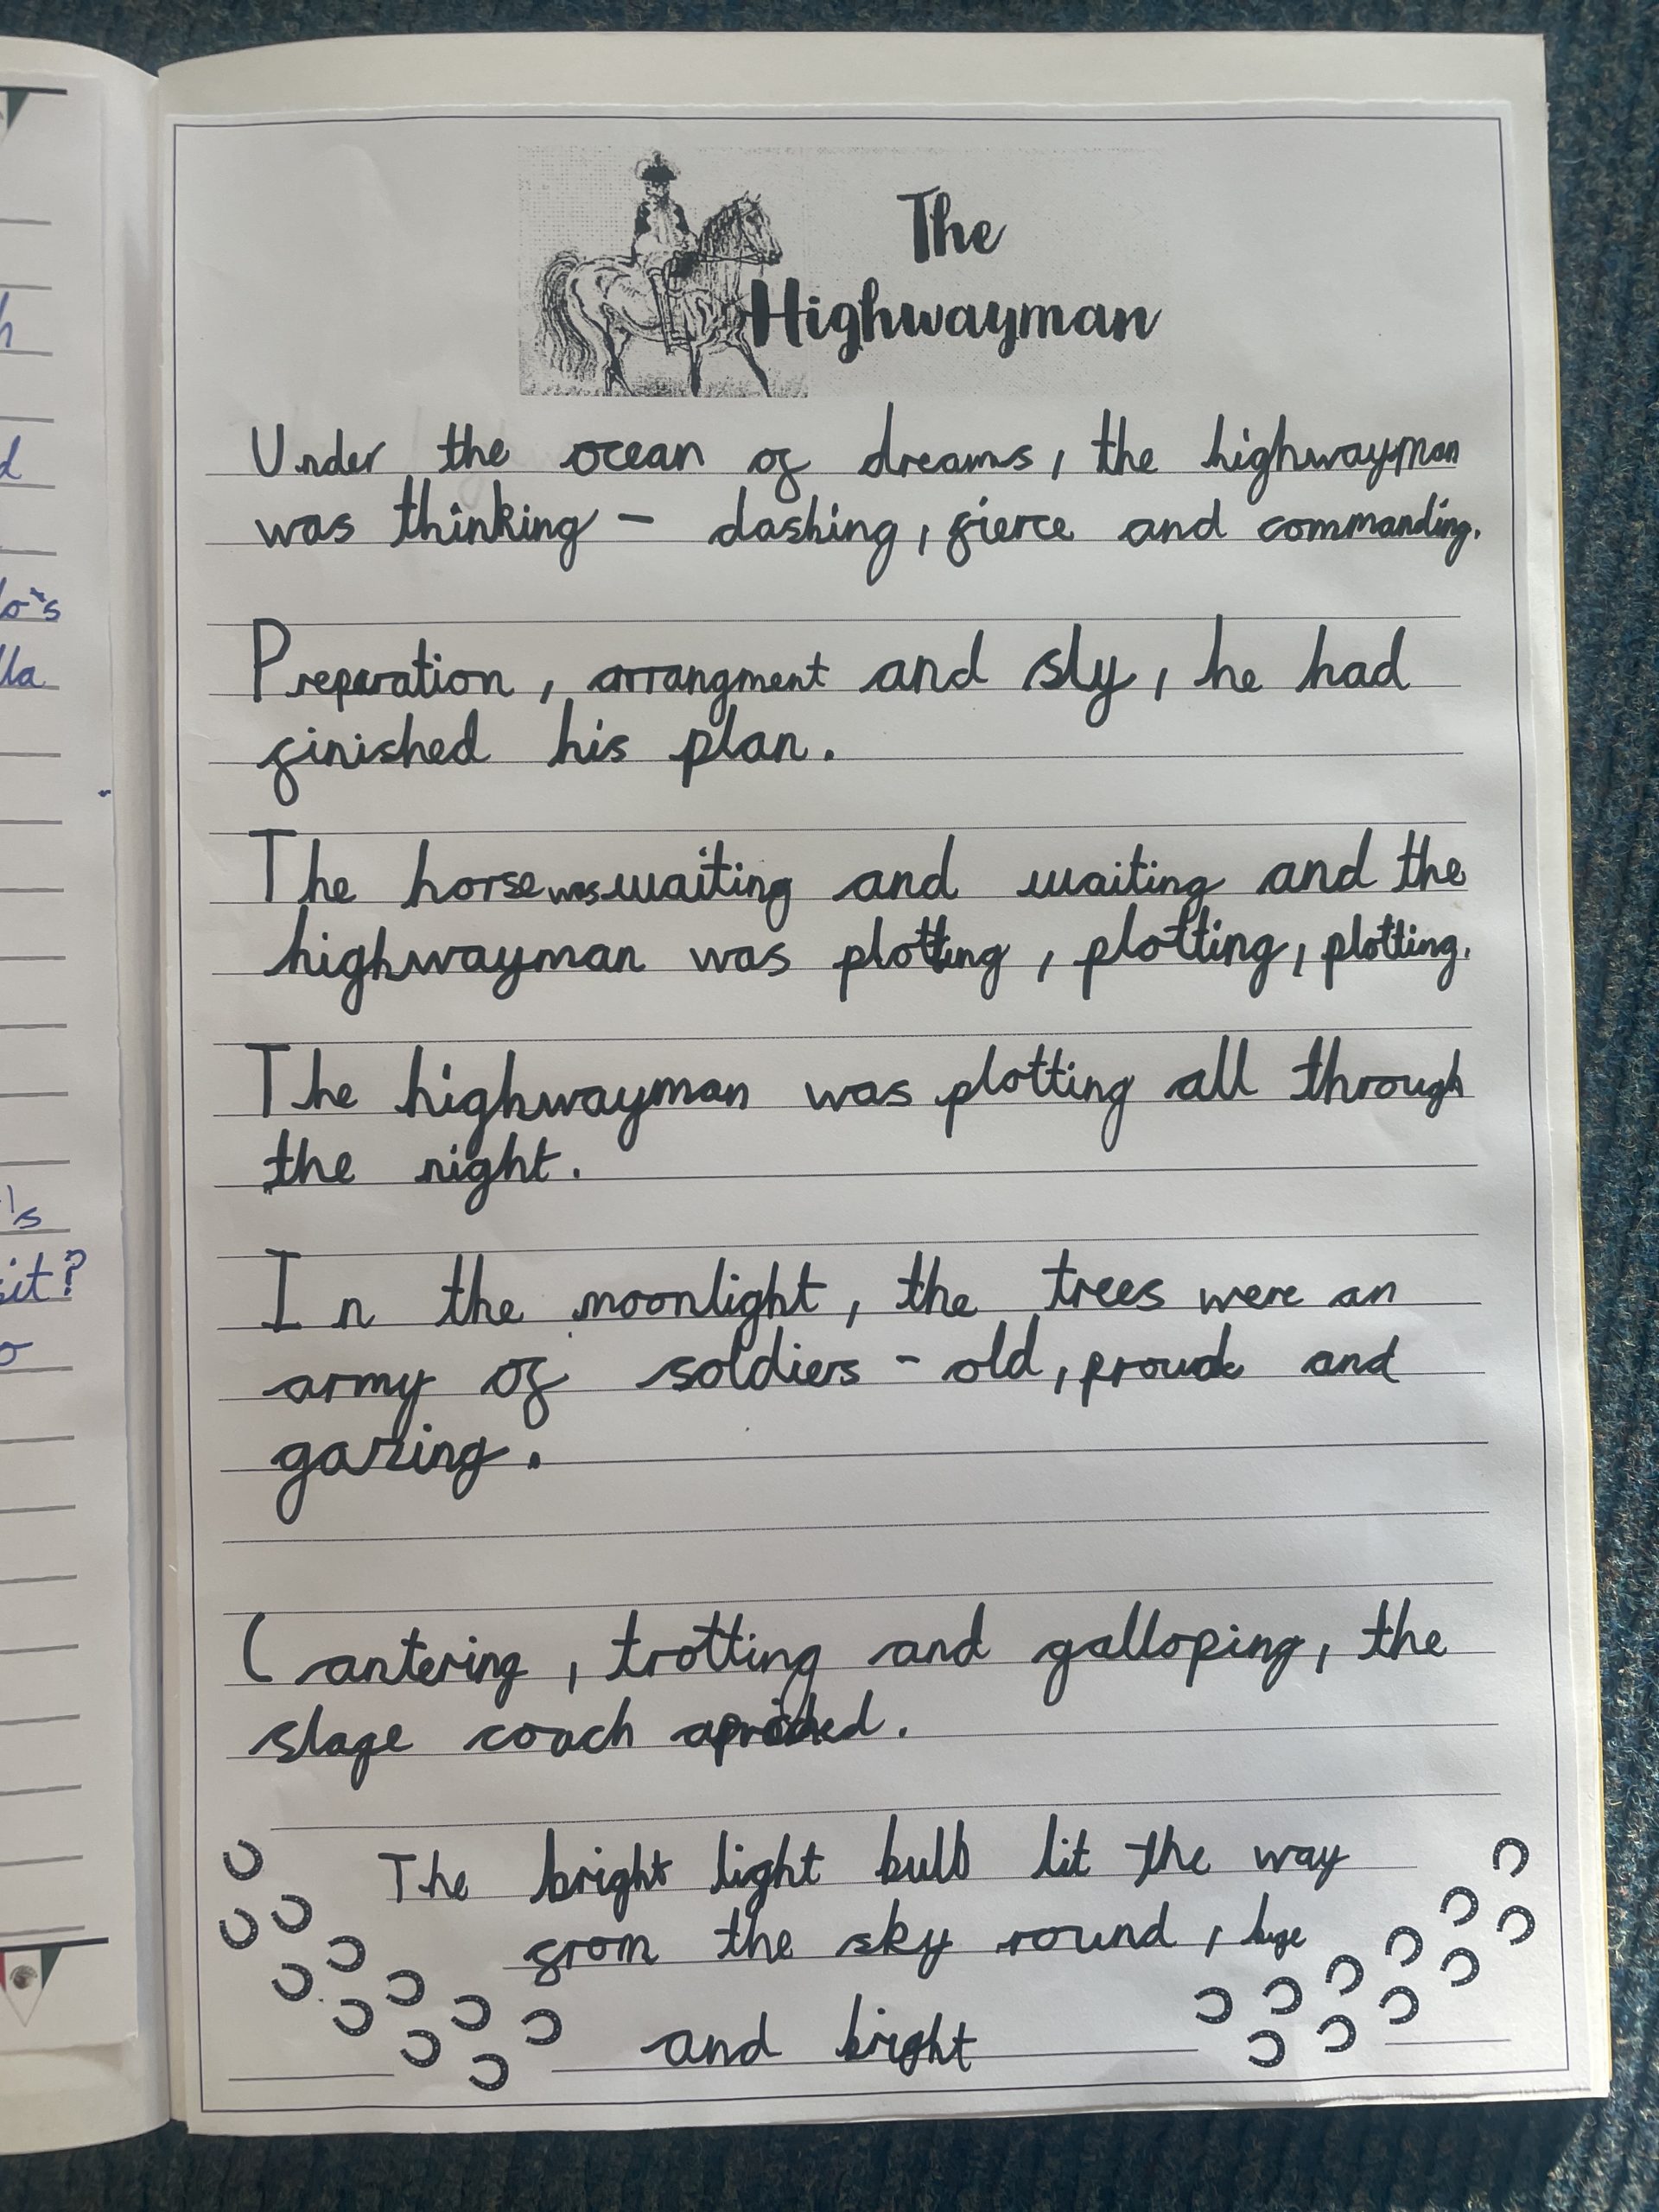 The
Highwayman
Under the ocean of dreams, the highwayman
was thinking – dashing, fierce and commanding.
Preparation, arrangment and sly, he had
finished his plan.
The horse was waiting and waiting and the
highwayman was plotting, plotting, plotting.
The highwayman was plotting all through
the night.
In the moonlight, the trees were an
army of soldiers – old, proud and
gazing.
Cantering, trotting and galloping, the
stage coach
The bright light bulb lit the way
from the sky round, huge
and bright
h
d
lo's
lla
's
sit?
o